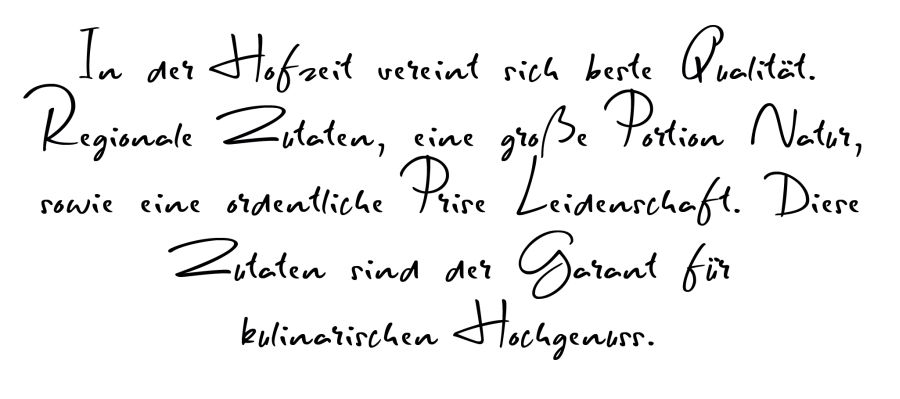 In der Hofzeit vereint sich beste Qualität.
Regionale Zutaten, eine große Portion Natur,
sowie eine ordentliche Prise Leidenschaft. Diese
Zutaten sind der Garant für
kulinarischen Hochgenuss.